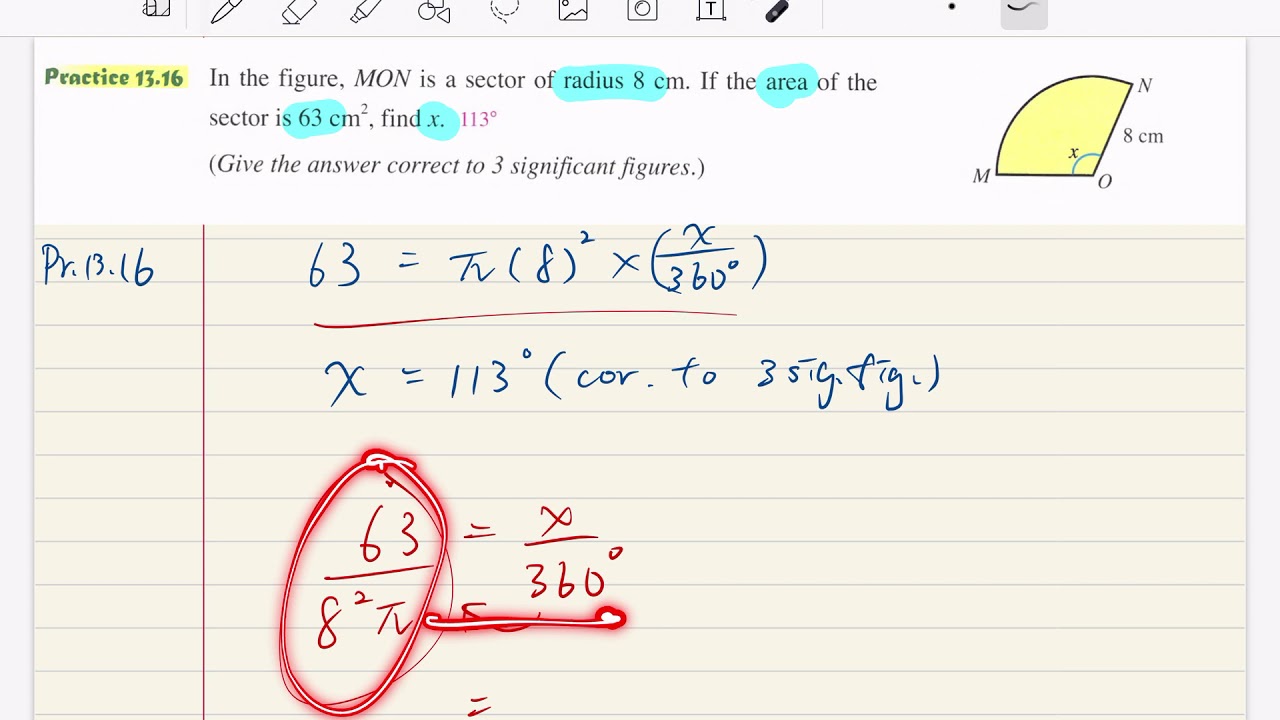 Practice 13.16 In the figure, MON is a sector of radius 8 cm. If the area of the
sector is 63 cm², find x. 113°
(Give the answer correct to 3 significant figures.)
N
8 cm
x
M
O
Pr.13.16 63 = π(8)² × (x/360°)
x = 113° (cor. to 3 sig. fig.)
63/8²π = x/360°
=